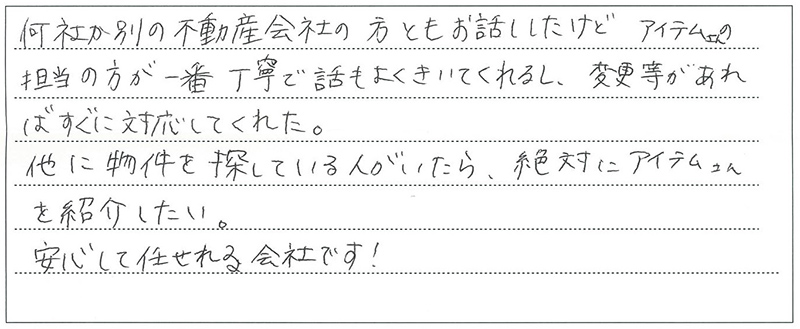 何社か別の不動産会社の方ともお話ししたけど アイテムさんの
担当の方が一番丁寧で話もよくきいてくれるし、変更等があれ
ばすぐに対応してくれた。
他に物件を探している人がいたら、絶対にアイテムさん
を紹介したい。
安心して任せれる会社です!